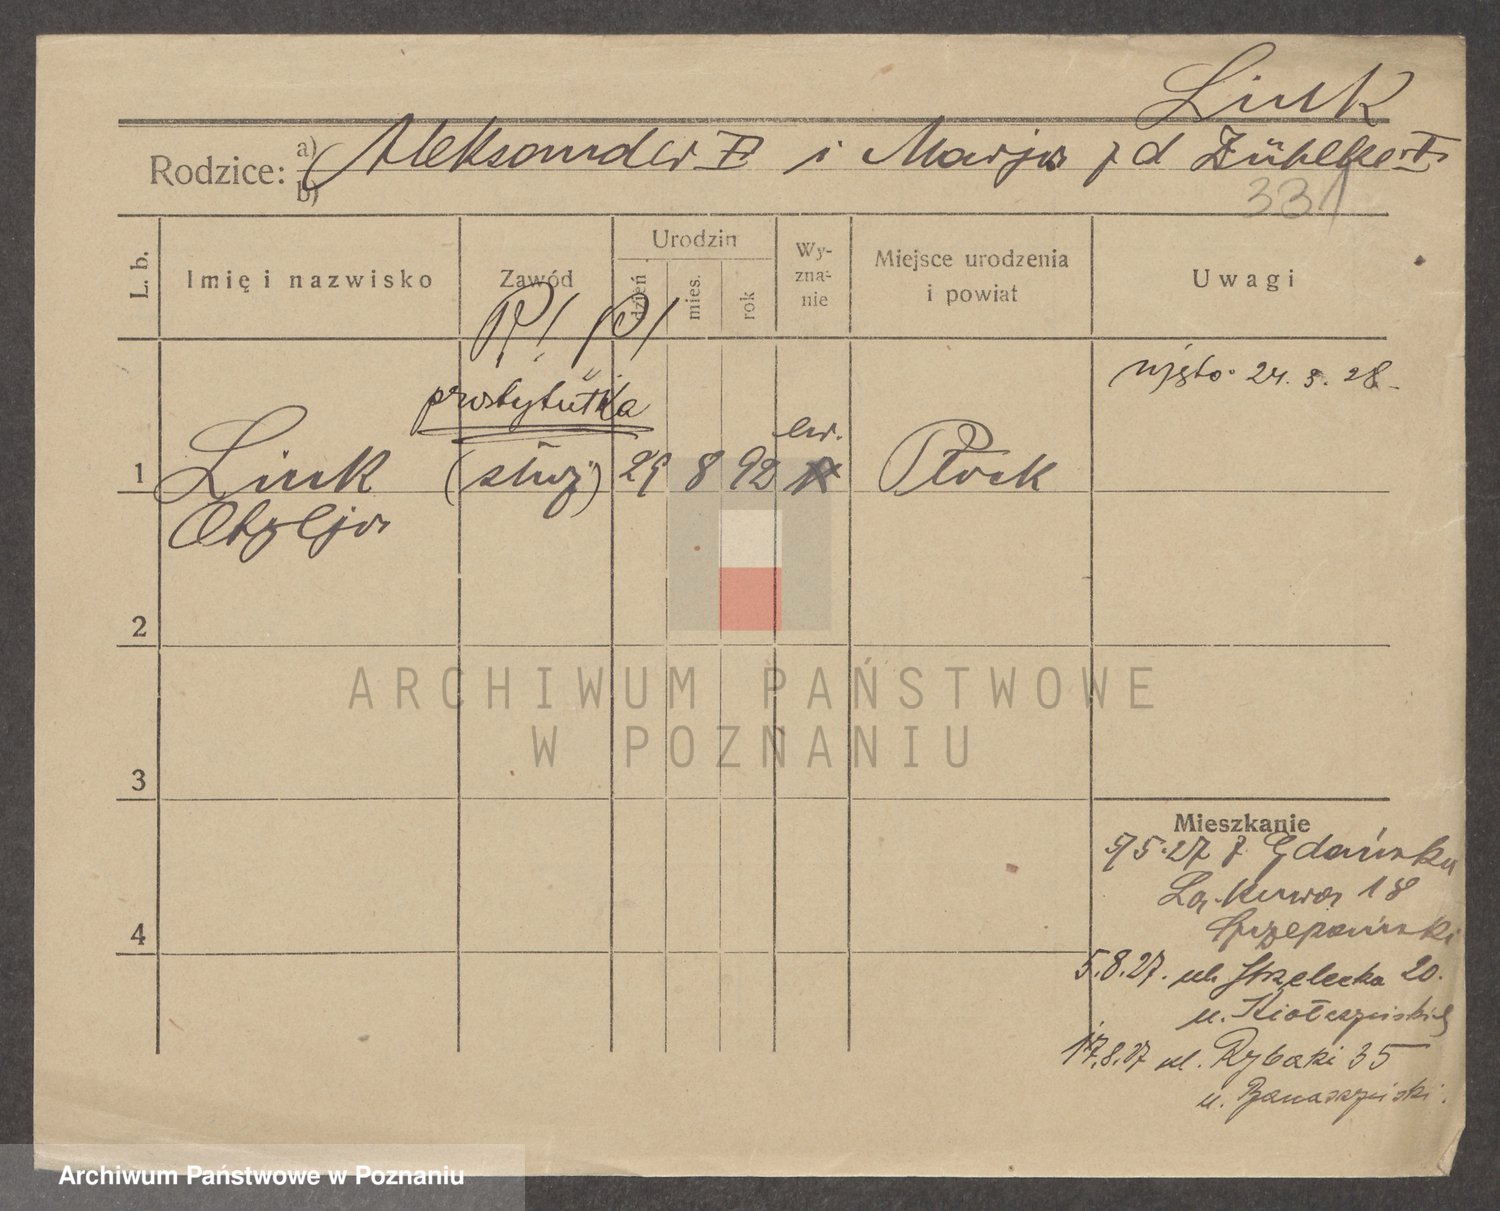 Link
Rodzice: a) Aleksander i Marja z d Zühlke
b)
331
L. b.
Imię i nazwisko
Zawód
Urodzin
dzień
mies.
rok
Wy-
zna-
nie
Miejsce urodzenia
i powiat
Uwagi
R! P!
wjęto 24. 5. 28.
prostytutka
ew.
1 Link (służ) 29 8 92 Płock
Otylja
2
3
4
ARCHIWUM PAŃSTWOWE
W POZNANIU
Mieszkanie
5.27 z Gdańska
Łąkowa 18
5.8.27. ul. Strzelecka 20.
u.
17.8.27 ul. Rybaki 35
u. Banaszyński.
Archiwum Państwowe w Poznaniu